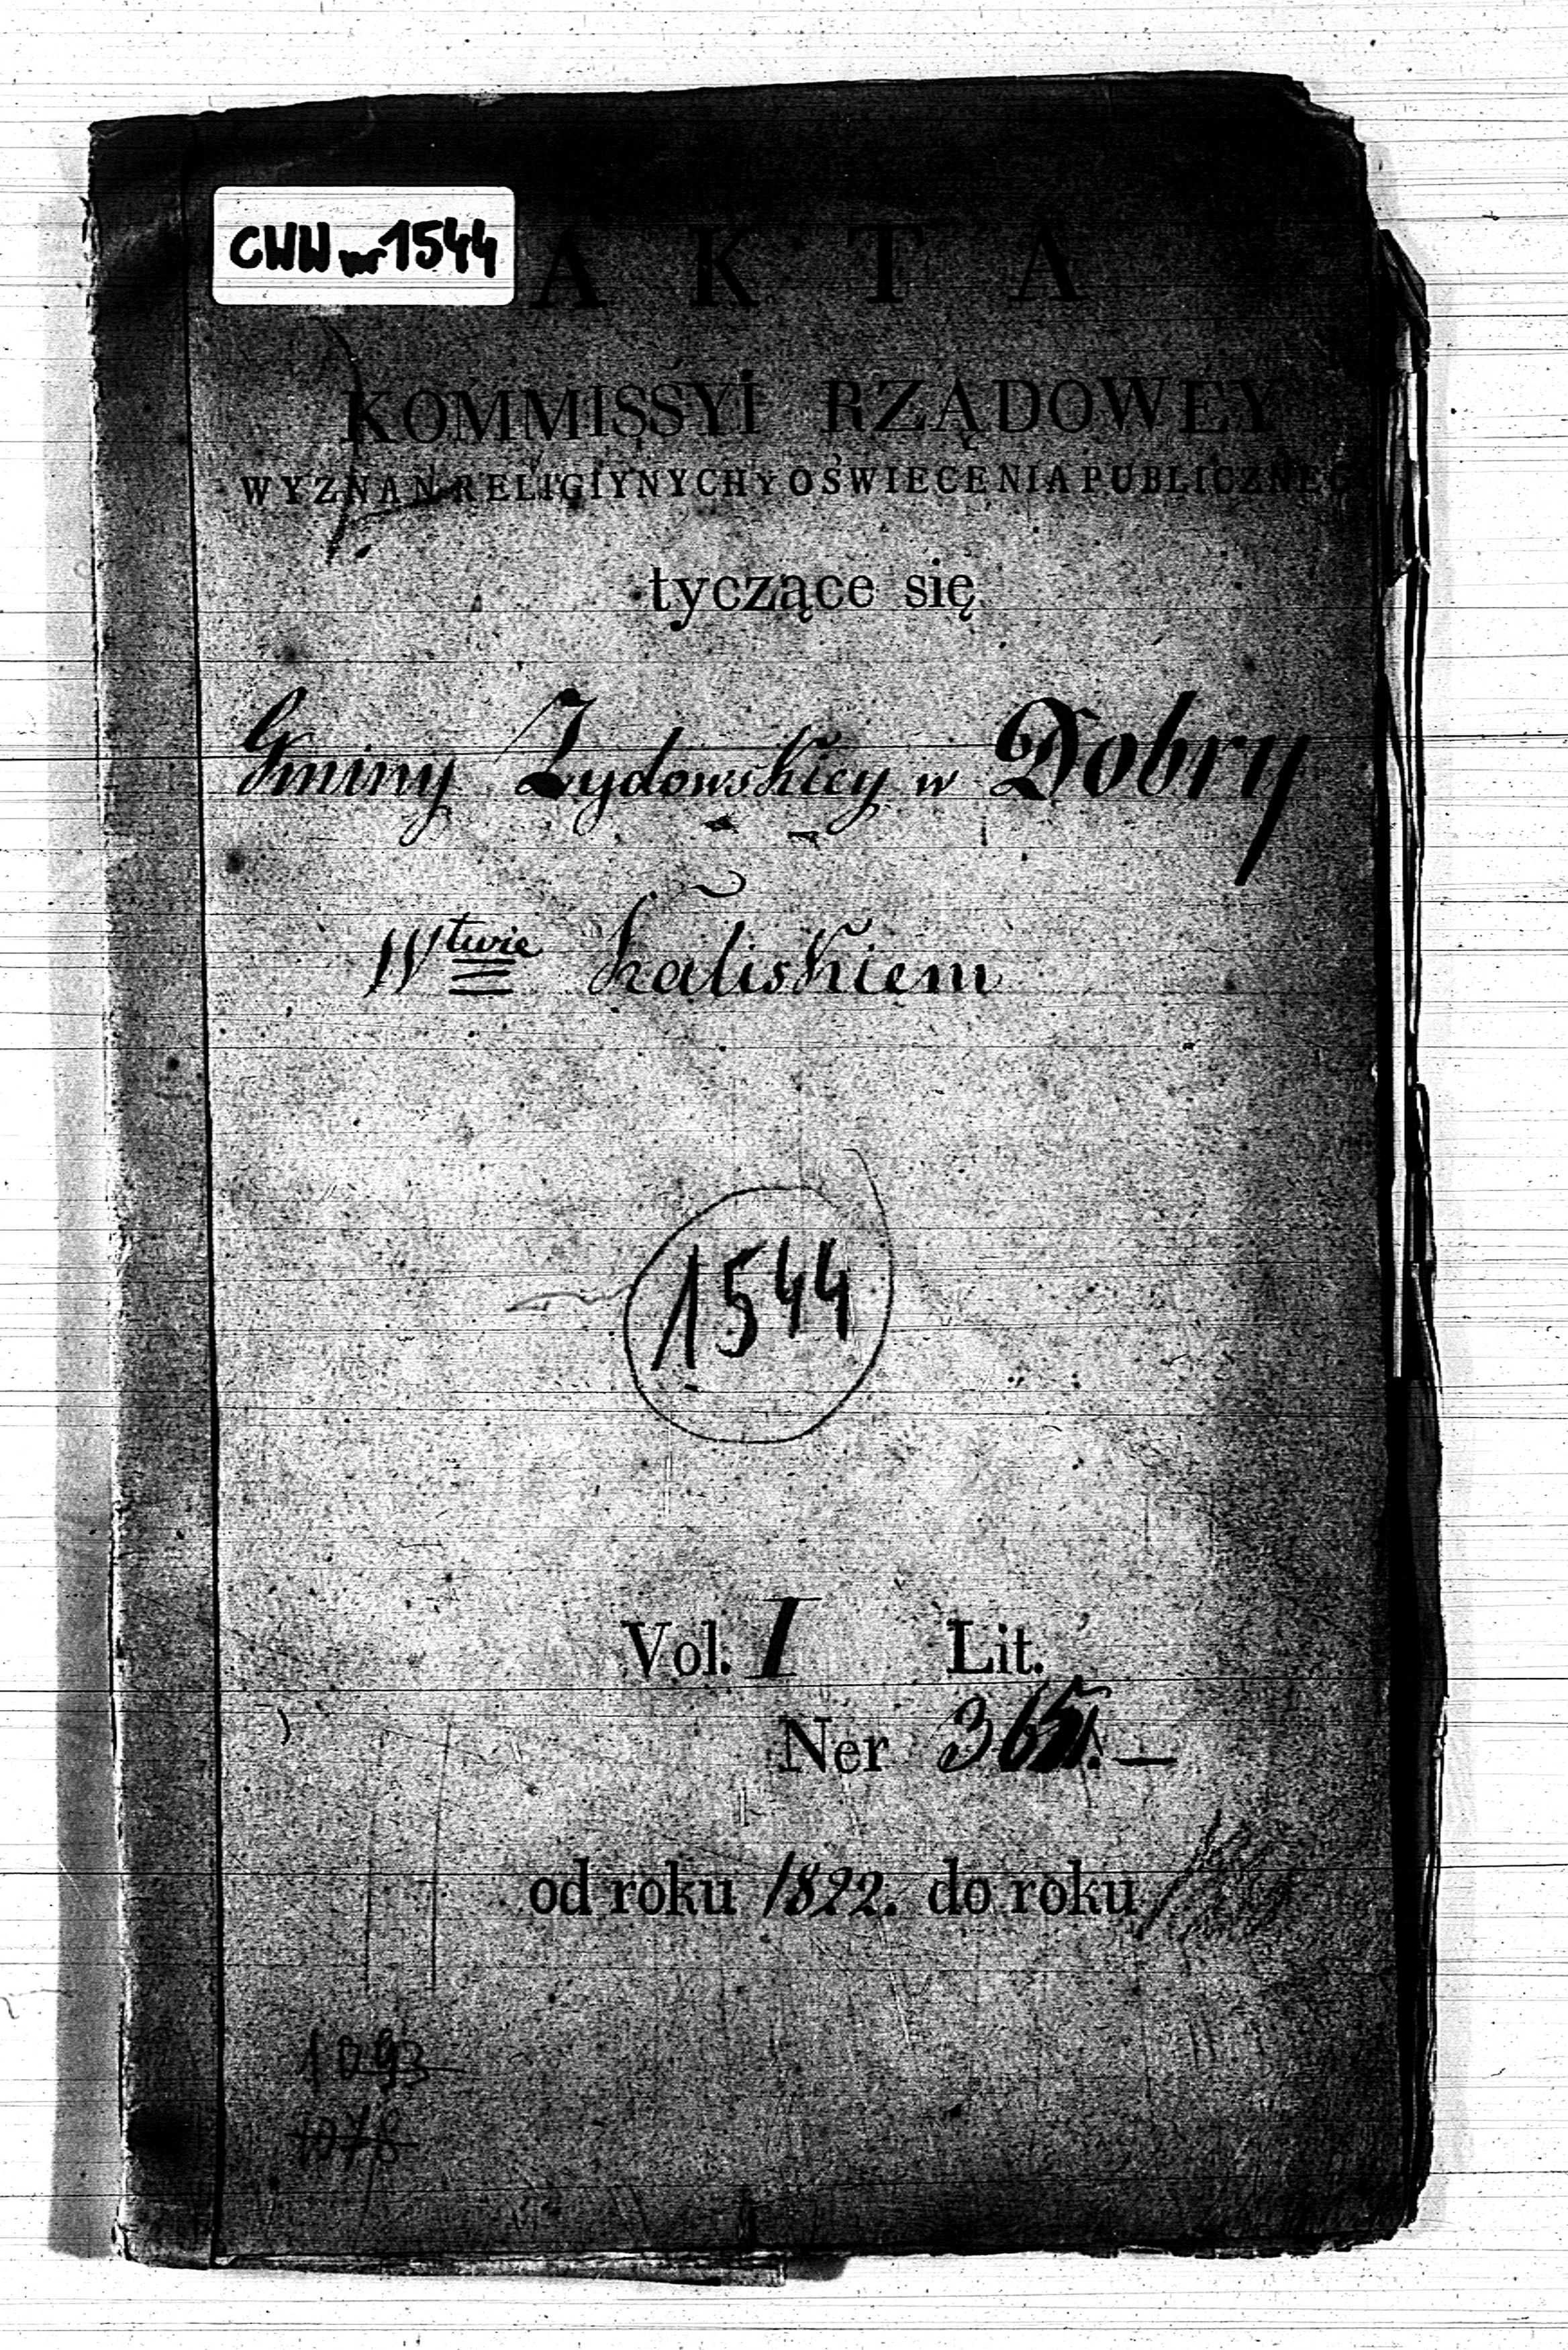 CWW nr 1544
AKTA
KOMMISSYI RZĄDOWEY
WYZNAN RELIGIYNYCH Y OŚWIECENIA PUBLICZNEG
tyczące się
Gminy Żydowskiey w Dobry
Wtwie Kaliskiem
1544
Vol. I Lit.
Ner
od roku 1822. do roku
1093
1078